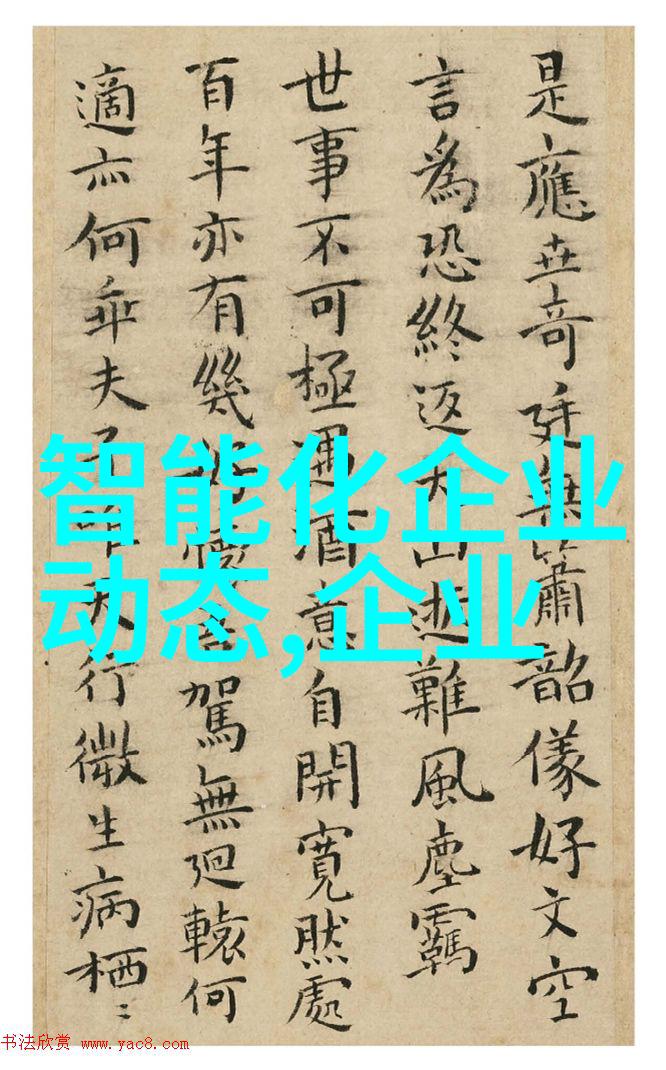 是應世奇廷無簫韶儀好文空
言為恐終返山逝難風塵羈
世事不可極遇酒意自開寬然處
百年亦有幾駕無迴轅何
適亦何乖夫子天行微生病栖〻
智能化企业
动态,企业
书法欣赏 www.yac8.com